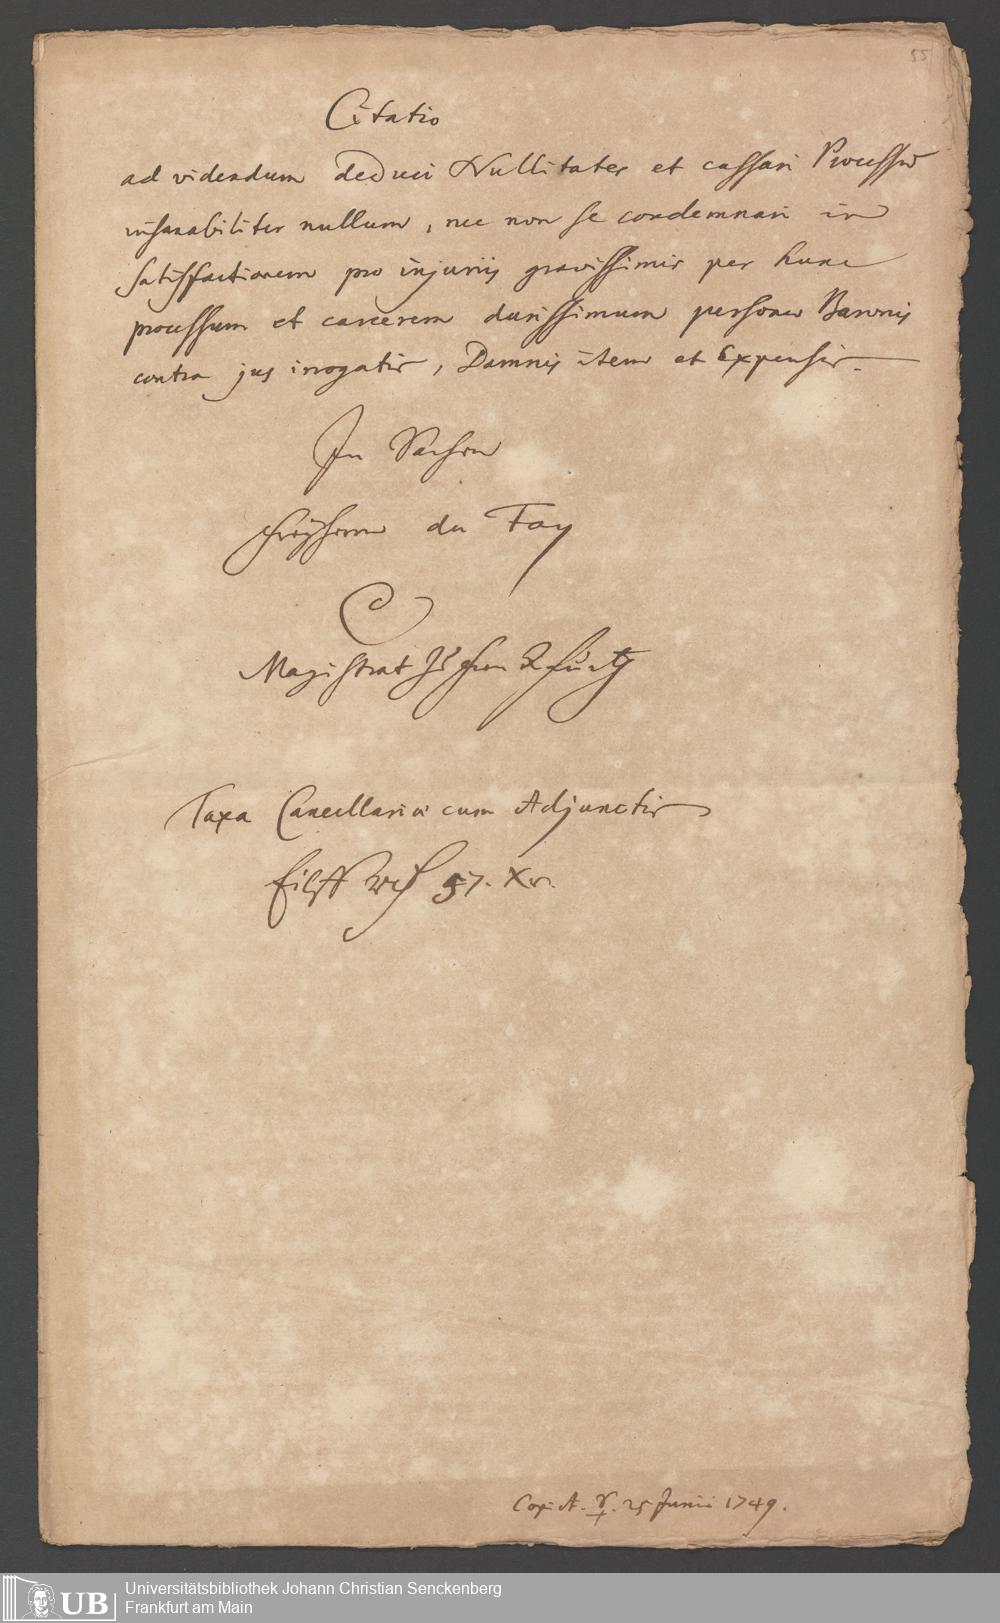 55
Citatio
ad videndum deduci Nullitates et cassari Processum
insanabiliter nullum, nec non se condemnari in
satisfactionem pro injuriis gravissimis per hunc
processum et carcerem durissimum personae Baronis
contra jus irrogatis, Damnis item et Expensis.
In Sachen
Freyherrn du Fay
C
Magistrat zu Franckfurth
Taxa Cancellariae cum Adjunctis
Eilff 57. Xr.
Cop. A. 25 Junii 1749.
UB Universitätsbibliothek Johann Christian Senckenberg
Frankfurt am Main